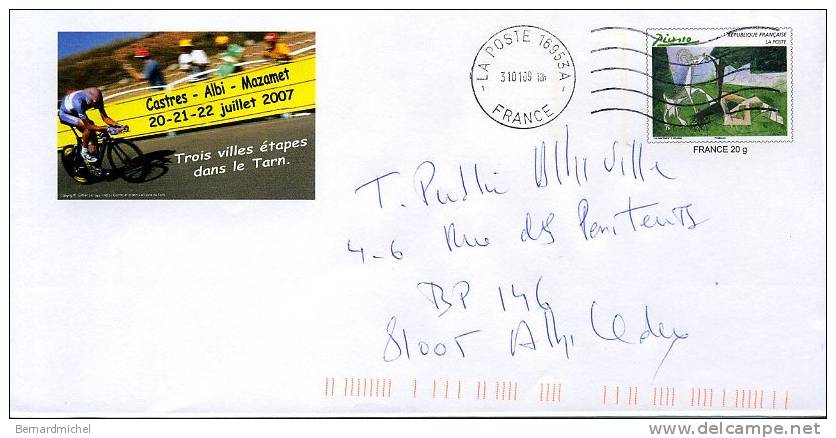 Castres - Albi - Mazamet
20-21-22 juillet 2007
Trois villes étapes
dans le Tarn.
LA POSTE 16953A
FRANCE
Picasso
RÉPUBLIQUE FRANÇAISE
LA POSTE
FRANCE 20 g
T. Public Albi Ville
4-6 Rue des Penitents
BP 146
81005 Albi Cedex
Bernardmichel
delcampe.net